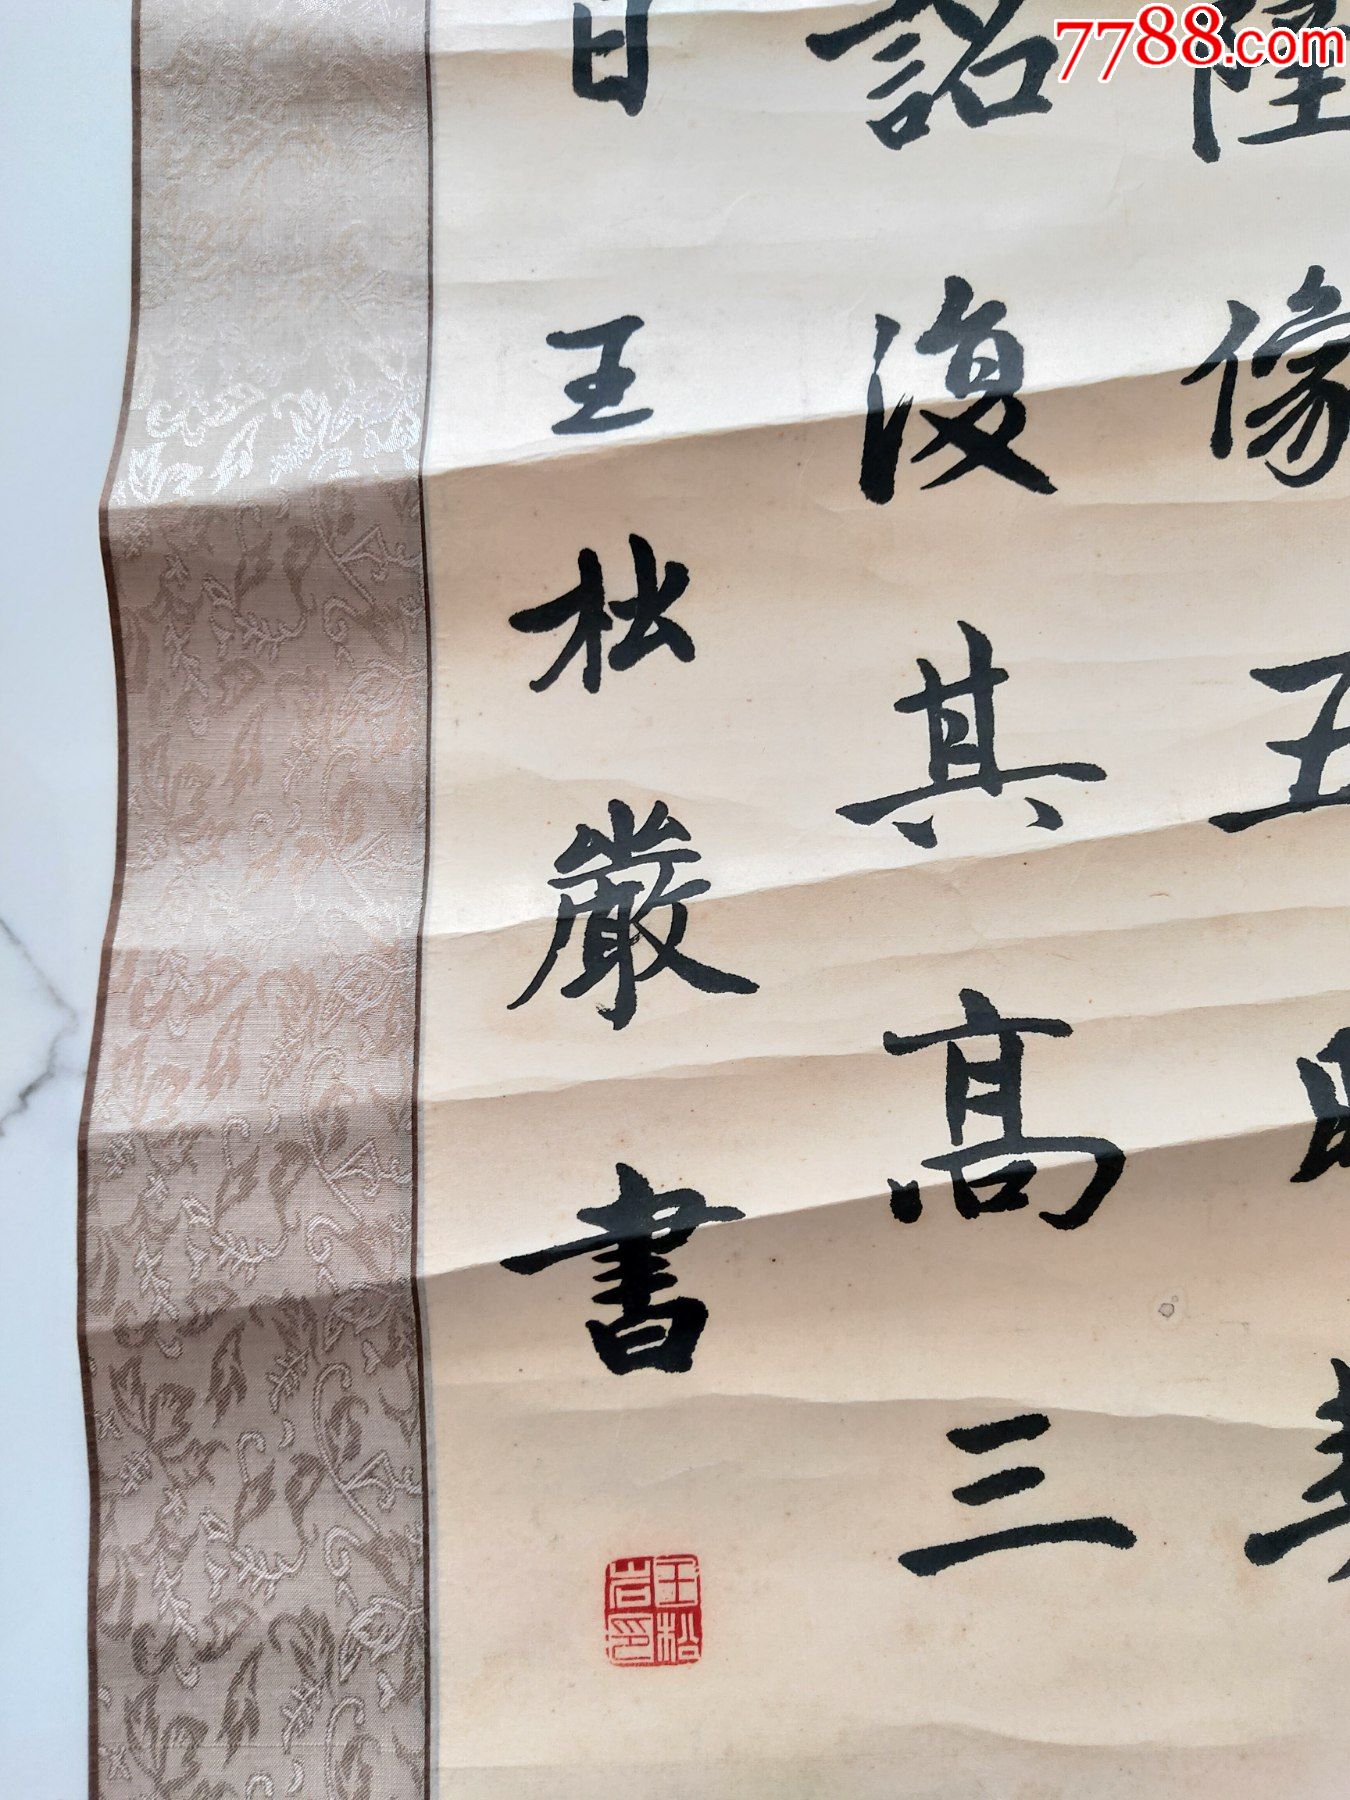 7788.com
像
詔復其高三
日王松嚴書
王松岩印